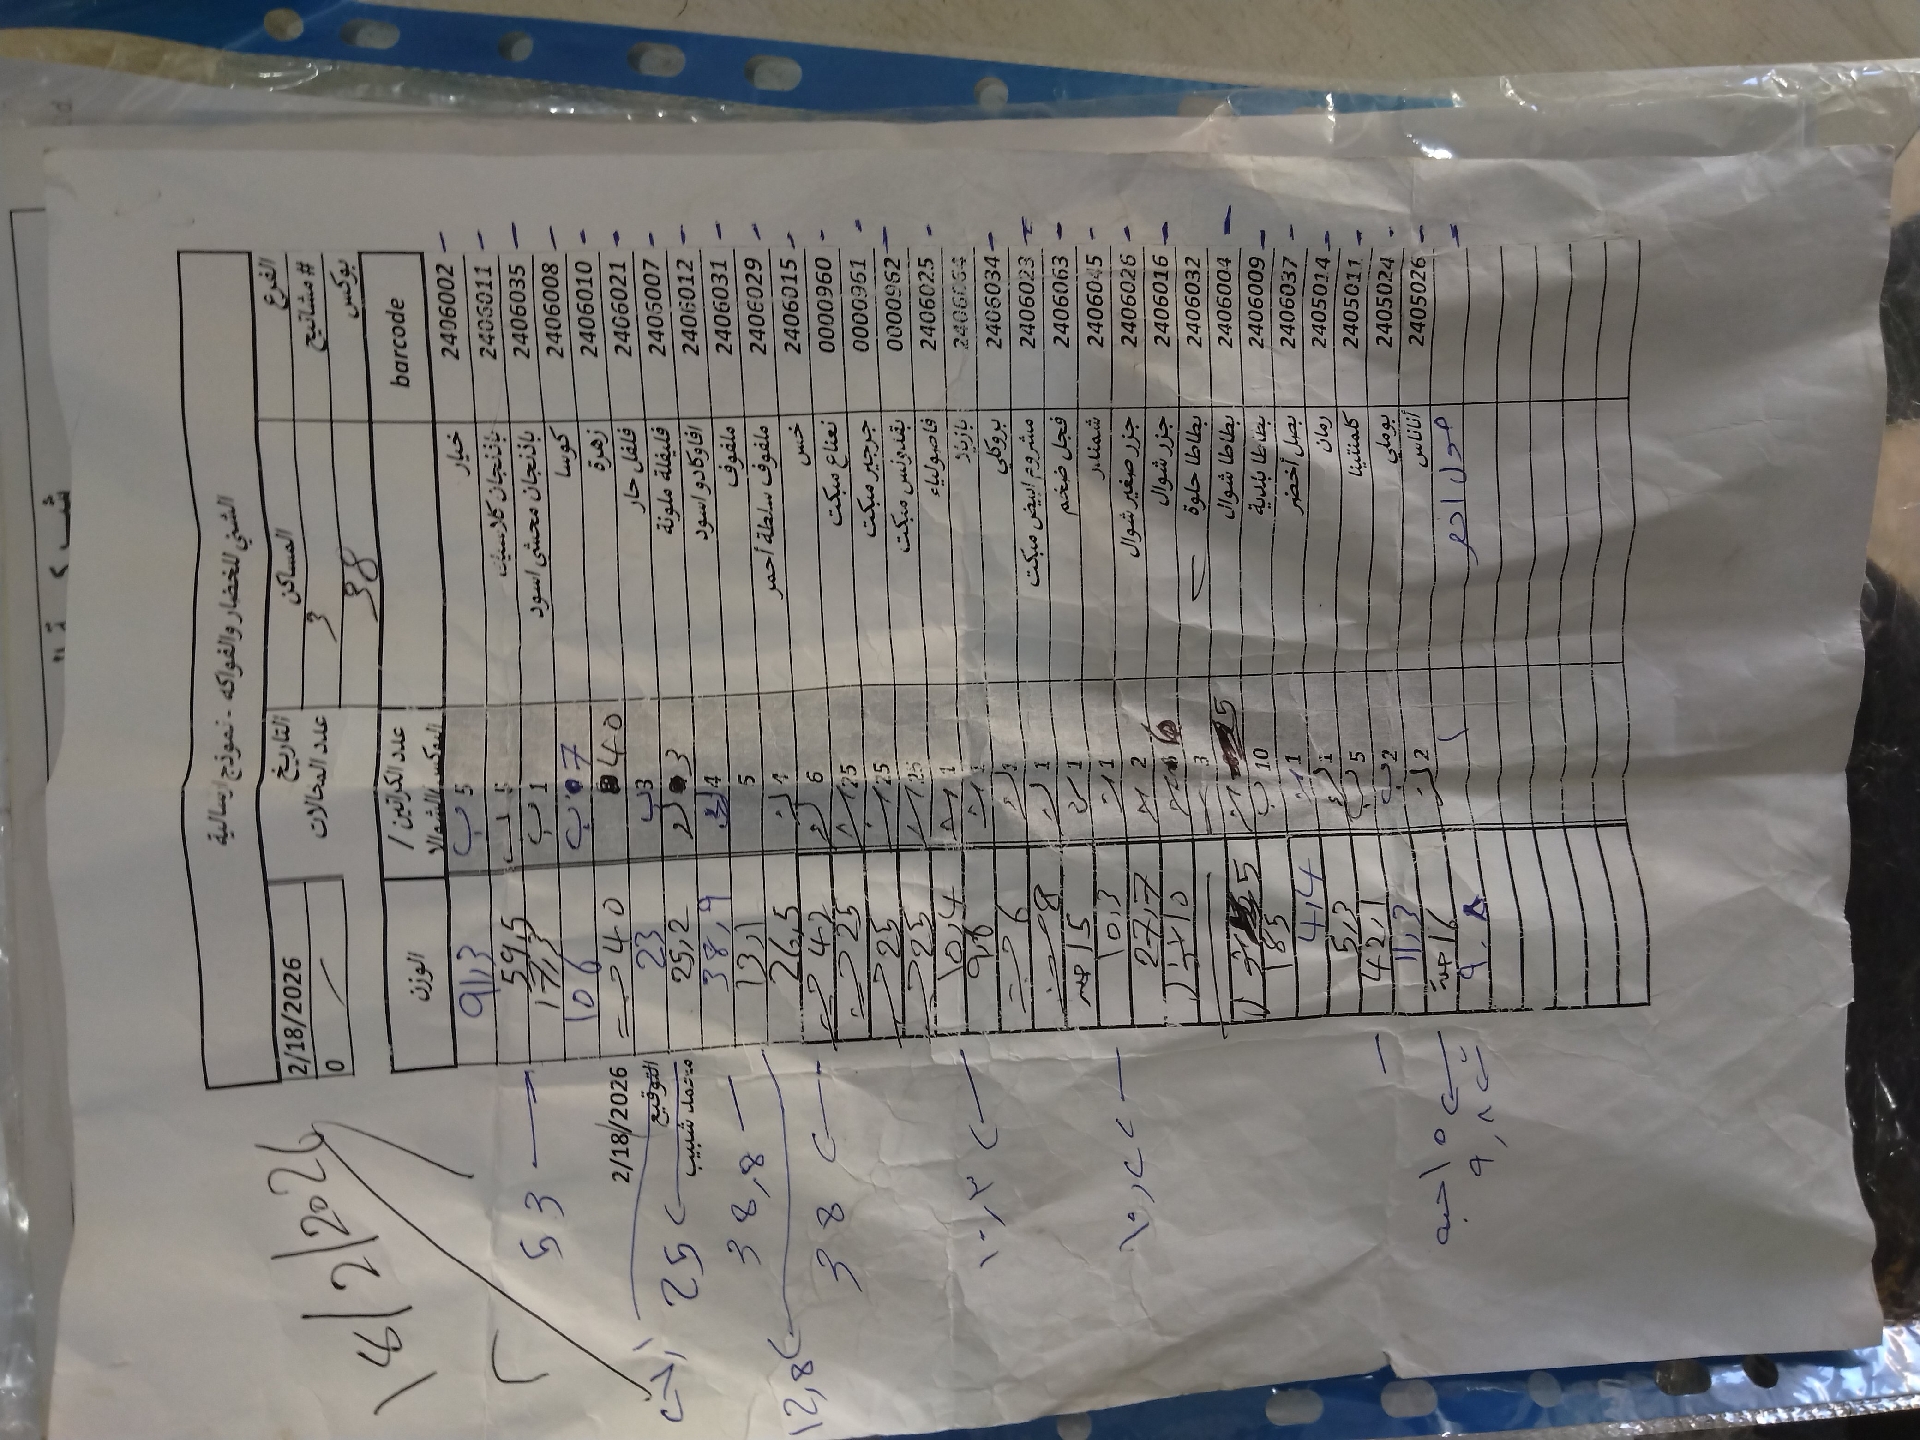 الشني للخضار والفواكه - نموذج ارسالية
الفرع المساكن التاريخ 2/18/2026
# مشاتيح 3 عدد المحالات 0
بوكس 38
barcode عدد الكراتين / البوكس/الشوالات الوزن
2406002 خيار 5 ب 91,3
2406011 باذنجان كلاسيك 5 ب 59,5
2406035 باذنجان محشي اسود 1 ب 17,3
2406008 كوسا 7 ب 106
2406010 زهرة 40 40
2406021 فلفل حار 3 ب 23
2406007 فليفلة ملونة 3 25,2
2406012 افاوكادو اسود 4 38,9
2406031 ملفوف 5 13,1
2406029 ملفوف سلطة أحمر 4 26,5
2406015 خس 6 42
0000960 نعناع مبكت 25 25
0000961 جرجير مبكت 25 25
0000962 بقدونس مبكت 25 25
2406025 فاصولياء 1 10,4
بازيلا 1 9,8
2406034 بروكلي 6
2406023 مشروم ابيض مبكت 1 8
2406063 فجل ضخم 1 15
2406045 شمندر 1 10,3
2406026 جزر صغير شوال 2 27,7
2406016 جزر شوال
2406032 بطاطا حلوة 3
2406004 بطاطا شوال 25
2406009 بطاطا بلدية 10 185
2406037 بصل أخضر 1 4,4
2405014 رمان 1 5,3
2405011 كلمنتينا 5 42,1
2405024 بوملي 2 11,3
2405026 أناناس 2 16 حبة
2/18/2026
التوقيع
محمد شبيب
18/2/2026
53
25
38,8
12,8
38
١٠,٣
١٠,٢
١٥ حبة
٩,٨